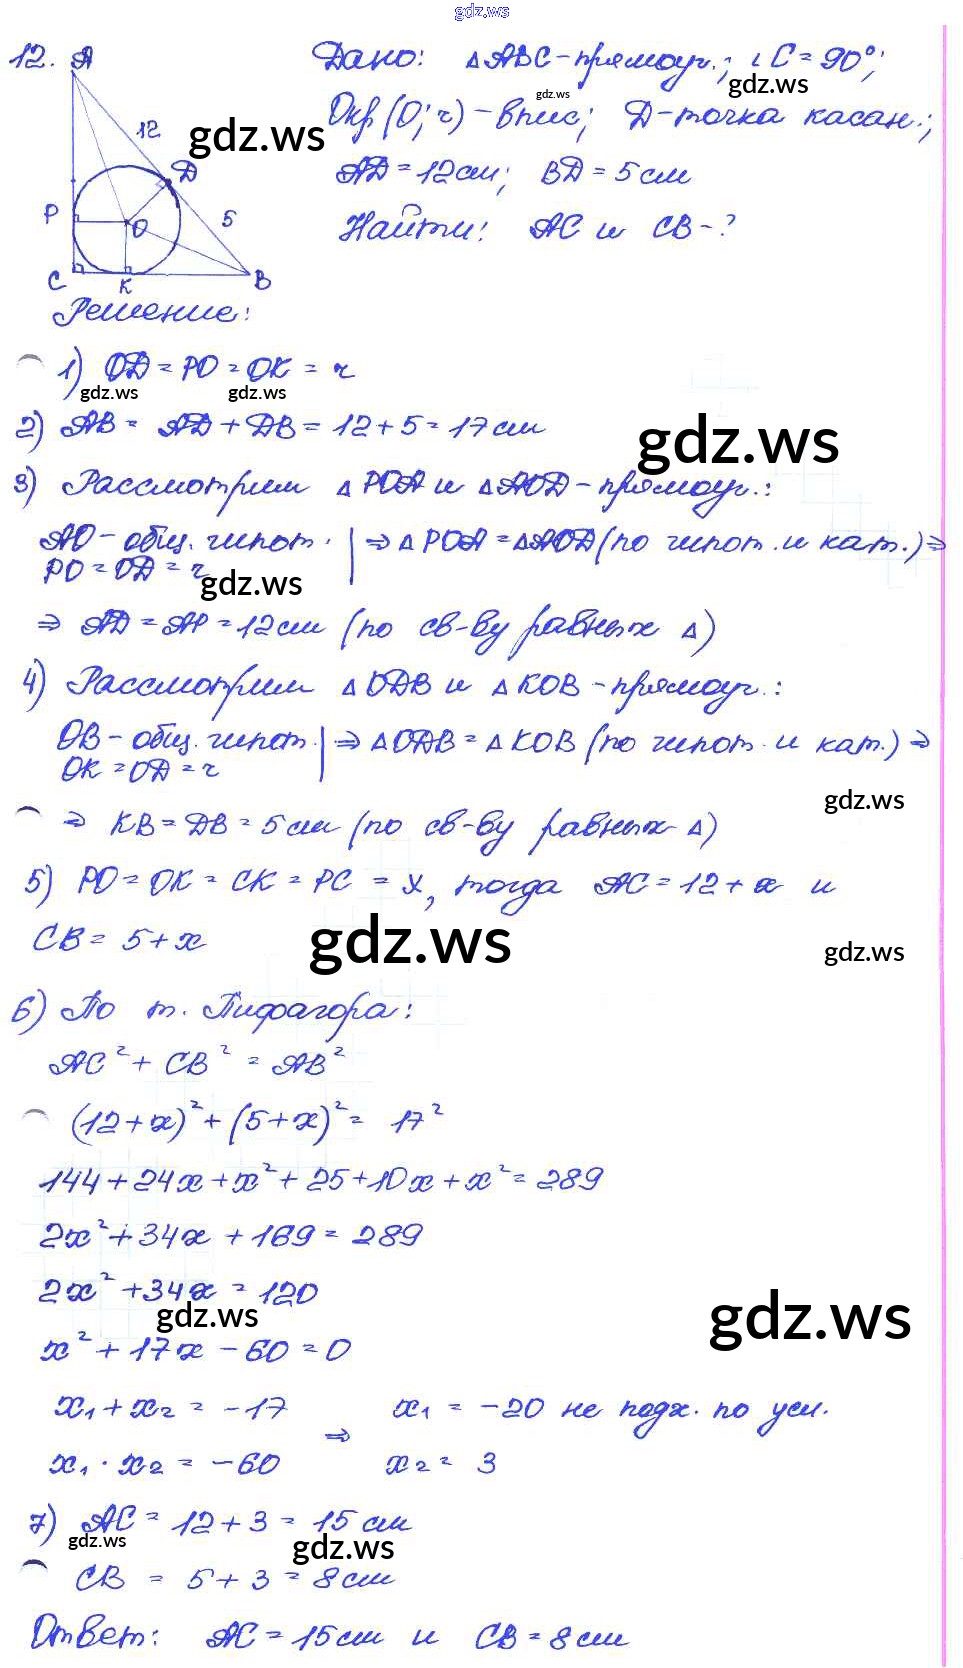 gdz.ws
12. A
Дано: △ABC-прямоуг.; ∠C=90°;
gdz.ws
gdz.ws
12
gdz.ws
Окр(O; r)-впис; D-точка касан.;
D
AD=12см; BD=5см
P
O
5
Найти: AC и CB-?
C K B
Решение:
1) OD=PO=OK=r
gdz.ws gdz.ws
2) AB= AD+DB=12+5=17см
gdz.ws
3) Рассмотрим △POA и △AOD-прямоуг.:
AO-общ. гипот. | ⇒ △POA=△AOD(по гипот. и кат.)⇒
PO=OD=r
gdz.ws
⇒ AD=AP=12см (по св-ву равных △)
4) Рассмотрим △ODB и △KOB-прямоуг.:
OB-общ. гипот. | ⇒ △ODB=△KOB (по гипот. и кат.)⇒
OK=OD=r
gdz.ws
⇒ KB=DB=5см (по св-ву равных △)
5) PO=OK=CK=PC=x, тогда AC=12+x и
CB=5+x
gdz.ws
gdz.ws
6) По т. Пифагора:
AC²+CB²=AB²
(12+x)²+(5+x)²=17²
144+24x+x²+25+10x+x²=289
2x²+34x+169=289
2x²+34x=120
gdz.ws
gdz.ws
x²+17x-60=0
x₁+x₂=-17 x₁=-20 не подх. по усл.
⇒
x₁·x₂=-60 x₂=3
7) AC=12+3=15см
gdz.ws gdz.ws
CB=5+3=8см
Ответ: AC=15см и CB=8см